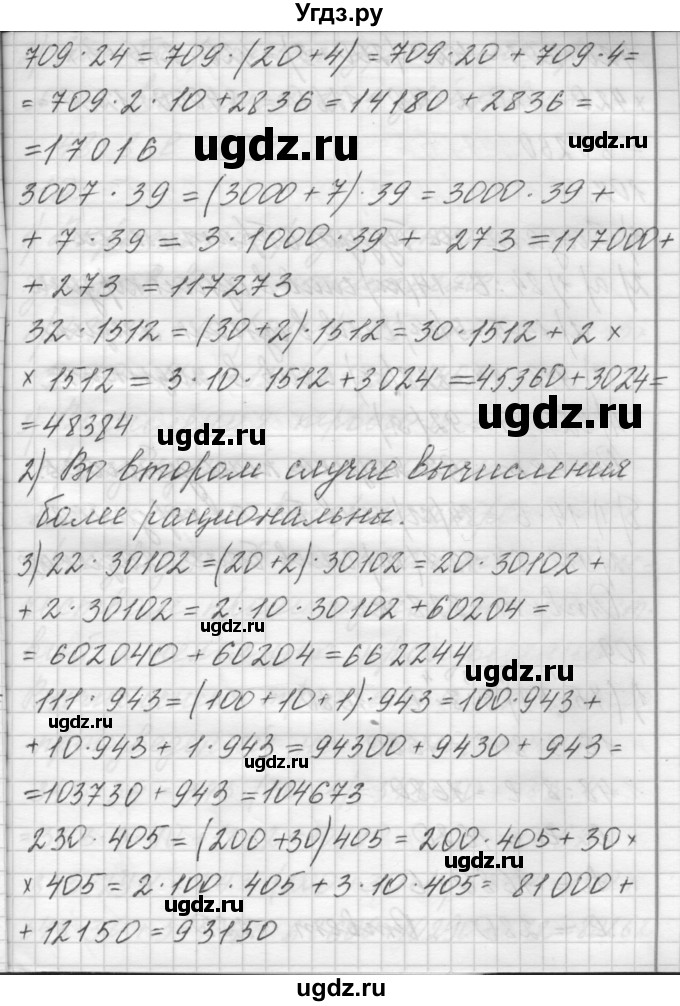 Угдз.ру
709·24 = 709·(20+4) = 709·20 + 709·4=
= 709·2·10+2836 = 14180+2836 =
=17016
ugdz.ru
ugdz.ru
3007·39 = (3000+7)·39 = 3000·39 +
+ 7·39 = 3·1000·39 + 273 = 117000+
+ 273 = 117273
32·1512 = (30+2)·1512 = 30·1512 + 2 ×
× 1512 = 3·10·1512 + 3024 = 45360+3024=
= 48384
ugdz.ru
ugdz.ru
2) Во втором случае вычисления
более рациональны.
3) 22·30102 = (20+2)·30102 = 20·30102 +
+ 2·30102 = 2·10·30102 + 60204 =
ugdz.ru
= 602040 + 60204 = 662244
ugdz.ru
111·943 = (100+10+1)·943 = 100·943 +
ugdz.ru
+ 10·943 + 1·943 = 94300 + 9430 + 943 =
ugdz.ru
= 103730 + 943 = 104673
230·405 = (200+30)405 = 200·405 + 30 ×
ugdz.ru
× 405 = 2·100·405 + 3·10·405 = 81000 +
ugdz.ru
+ 12150 = 93150
ugdz.ru